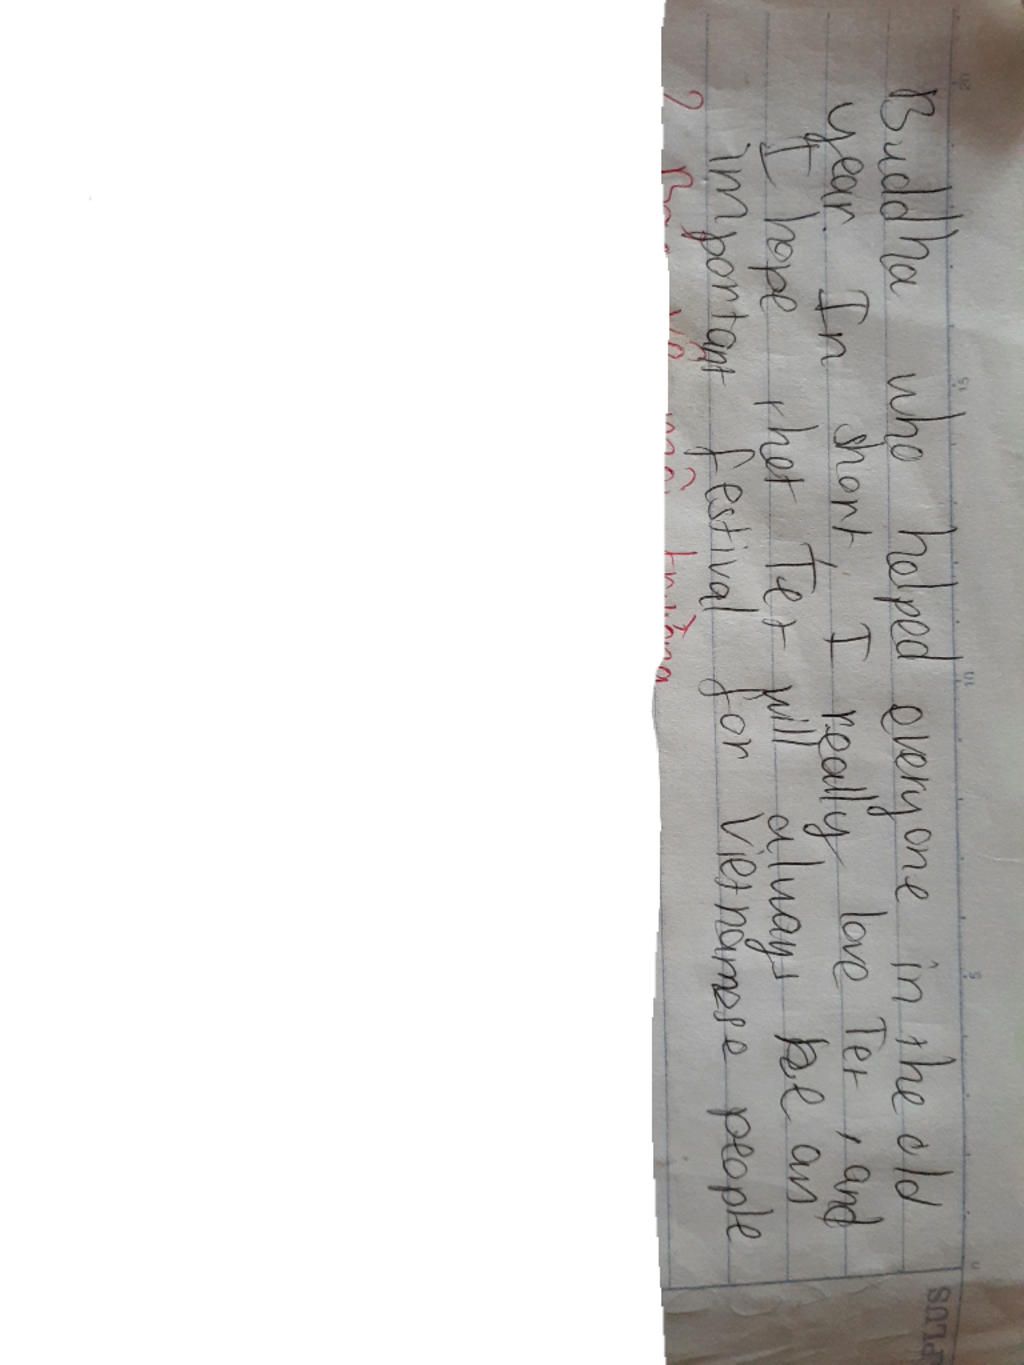 Buddha who helped everyone in the old
year. In short, I really love Tet, and
I hope thet Tet will always be an
important festival for Vietnamese people